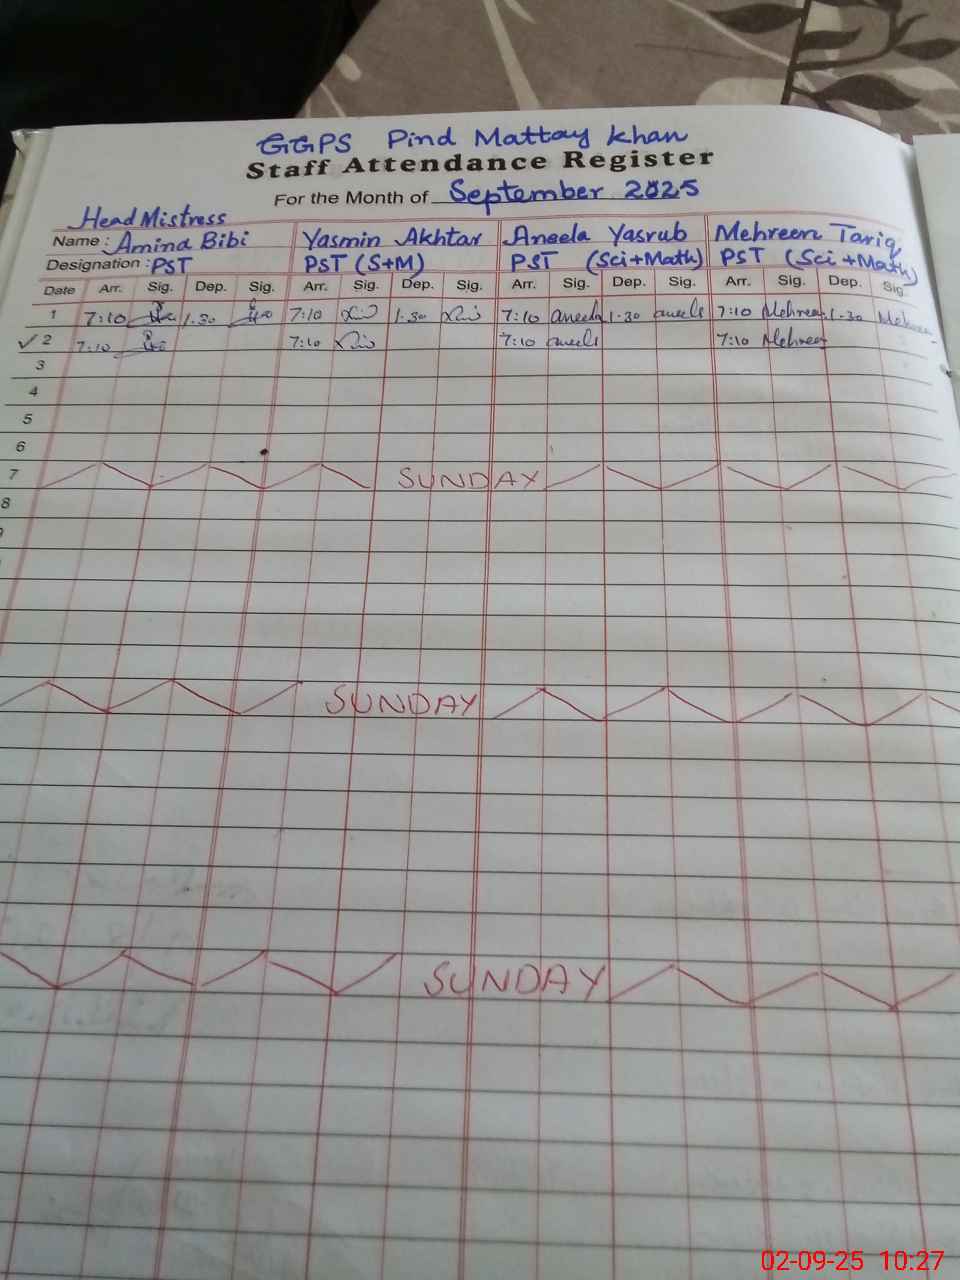 GGPS Pind Mattay Khan
Staff Attendance Register
For the Month of September 2025
Head Mistress
Name : Amina Bibi Yasmin Akhtar Aneela Yasrub Mehreen Tariq
Designation : PST PST (S+M) PST (Sci+Math) PST (Sci+Math)
Date Arr. Sig. Dep. Sig. Arr. Sig. Dep. Sig. Arr. Sig. Dep. Sig. Arr. Sig. Dep. Sig.
1 7:10 1.30 7:10 1.30 7:10 aneela 1.30 aneela 7:10 Mehreen 1.30 Mehreen
✓ 2 7:10 7:10 7:10 aneela 7:10 Mehreen
3
4
5
6
7 SUNDAY
8
SUNDAY
SUNDAY
02-09-25 10:27